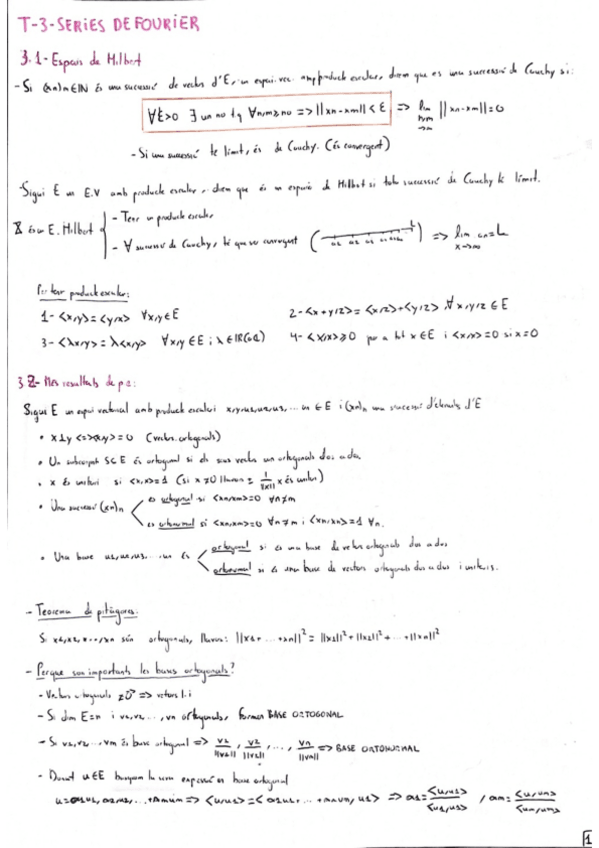 T-3-SERIES DE FOURIER
3.1- Espais de Hilbert
- Si (xn)n∈IN és una successió de vectors d'E, un espai vec. amb producte escalar, diem que es una successió de Cauchy si:
∀ε>0 ∃ un no tq ∀n,m≥no => ||xn-xm|| < ε => lim n,m→∞ ||xn-xm||=0
- Si una successió te límit, és de Cauchy. (és convergent)
- Sigui E un E.V amb producte escalar, diem que és un espai de Hilbert si tota successió de Cauchy té límit.
E. Hilbert
- Tenir un producte escalar
- ∀ successió de Cauchy, té que ser convergent => lim x→∞ an=L
producte escalar:
1- <x,y>=<y,x> ∀x,y∈E 2- <x+y,z>=<x,z>+<y,z>, ∀x,y,z∈E
3- <λx,y>=λ<x,y> ∀x,y∈E i λ∈IR 4- <x,x>≥0 per a tot x∈E i <x,x>=0 si x=0
3.2- Més resultats de p.e:
Sigui E un espai vectorial amb producte escalar i x,y,u1,u2,u3,... un ∈ E i (xn)n una successió d'elements d'E
• x⊥y <=> <x,y>=0 (vectors ortogonals)
• Un subconjunt S⊆E és ortogonal si els seus vectors son ortogonals dos a dos.
• x és unitari si <x,x>=1 (si x≠0 llavors ± 1/||x|| x és unitari)
• Una successió (xn)n
es ortogonal si <xn,xm>=0 ∀n≠m
es ortonormal si <xn,xm>=0 ∀n≠m i <xn,xn>=1 ∀n.
• Una base u1,u2,u3,...,un és
ortogonal si és una base de vectors ortogonals dos a dos
ortonormal si és una base de vectors ortogonals dos a dos i unitaris.
- Teorema de pitàgores:
Si x1,x2,...,xn són ortogonals, llavors: ||x1+...+xn||² = ||x1||²+||x2||²+...+||xn||²
- Perque son importants les bases ortogonals?
- Vectors ortogonals ≠0 => vectors l.i
- Si dim E=n i v1,v2,...,vn ortogonals, formen BASE ORTOGONAL
- Si v1,v2,...,vm és base ortogonal => v1/||v1||, v2/||v2||, ..., vn/||vn|| => BASE ORTONORMAL
- Donat u∈E busquem la seva expressió en base ortogonal
u=a1u1,a2u2,...+amum => <u,u1>=<a1u1+...+amum,u1> => a1=<u,u1>/<u1,u1> , am=<u,um>/<um,um>
1